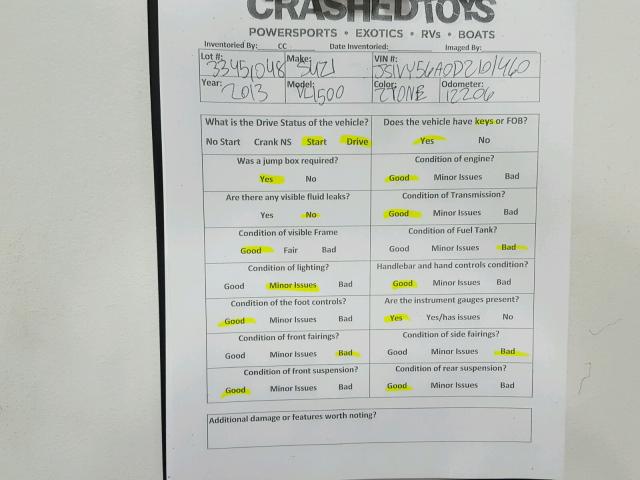 CRASHEDTOYS
POWERSPORTS • EXOTICS • RVs • BOATS
Inventoried By: CC Date Inventoried: Imaged By:
Lot #: 33451048 Make: SUZI VIN #: JS1VY56A0D2101460
Year: 2013 Model: VL1500 Color: 2TONE Odometer: 12206
What is the Drive Status of the vehicle? Does the vehicle have keys or FOB?
No Start Crank NS Start Drive Yes No
Was a jump box required? Condition of engine?
Yes No Good Minor Issues Bad
Are there any visible fluid leaks? Condition of Transmission?
Yes No Good Minor Issues Bad
Condition of visible Frame Condition of Fuel Tank?
Good Fair Bad Good Minor Issues Bad
Condition of lighting? Handlebar and hand controls condition?
Good Minor Issues Bad Good Minor Issues Bad
Condition of the foot controls? Are the instrument gauges present?
Good Minor Issues Bad Yes Yes/has issues No
Condition of front fairings? Condition of side fairings?
Good Minor Issues Bad Good Minor Issues Bad
Condition of front suspension? Condition of rear suspension?
Good Minor Issues Bad Good Minor Issues Bad
Additional damage or features worth noting?